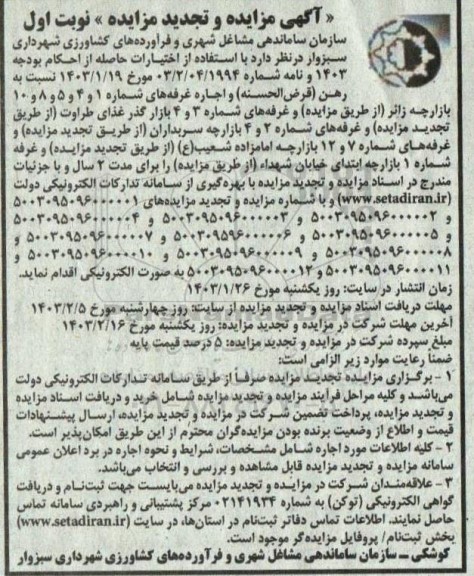 « آگهی مزایده و تجدید مزایده » نوبت اول
سازمان ساماندهی مشاغل شهری و فرآورده‌های کشاورزی شهرداری
سبزوار درنظر دارد با استفاده از اختیارات حاصله از احکام بودجه
۱۴۰۳ و نامه شماره ۰۳/۲/۰۴/۱۹۹۴ مورخ ۱۴۰۳/۱/۱۹ نسبت به
رهن (قرض‌الحسنه) و اجاره غرفه‌های شماره ۱ و ۴ و ۵ و ۸ و ۱۰
بازارچه زائر (از طریق مزایده) و غرفه‌های شماره ۳ و ۴ بازار گذر غذای طراوت (از طریق
تجدید مزایده) و غرفه‌های شماره ۲ و ۴ بازارچه سربداران (از طریق تجدید مزایده) و
غرفه‌های شماره ۷ و ۱۲ بازارچه امامزاده شعیب(ع) (از طریق تجدید مزایده) و غرفه
شماره ۱ بازارچه ابتدای خیابان شهداء (از طریق مزایده) را برای مدت ۲ سال و با جزئیات
مندرج در اسناد مزایده و تجدید مزایده با بهره‌گیری از سامانه تدارکات الکترونیکی دولت
(www.setadiran.ir) و با شماره مزایده و تجدید مزایده‌های ۵۰۰۳۰۹۵۰۹۶۰۰۰۰۰۱
و ۵۰۰۳۰۹۵۰۹۶۰۰۰۰۰۲ و ۵۰۰۳۰۹۵۰۹۶۰۰۰۰۰۳ و ۵۰۰۳۰۹۵۰۹۶۰۰۰۰۰۴
و ۵۰۰۳۰۹۵۰۹۶۰۰۰۰۰۵ و ۵۰۰۳۰۹۵۹۶۰۰۰۰۰۶ و ۵۰۰۳۰۹۵۰۹۶۰۰۰۰۰۷ و
۵۰۰۳۰۹۵۰۹۶۰۰۰۰۰۸ و ۵۰۰۳۰۹۵۰۹۶۰۰۰۰۰۹ و ۵۰۰۳۰۹۵۰۹۶۰۰۰۰۱۰ و
۵۰۰۳۰۹۵۰۹۶۰۰۰۰۱۱ و ۵۰۰۳۰۹۵۰۹۶۰۰۰۰۱۲ به صورت الکترونیکی اقدام نماید.
زمان انتشار در سایت: روز یکشنبه مورخ ۱۴۰۳/۱/۲۶
مهلت دریافت اسناد مزایده و تجدید مزایده از سایت: روز چهارشنبه مورخ ۱۴۰۳/۲/۵
آخرین مهلت شرکت در مزایده و تجدید مزایده: روز یکشنبه مورخ ۱۴۰۳/۲/۱۶
مبلغ سپرده شرکت در مزایده و تجدید مزایده: ۵ درصد قیمت پایه
ضمنا رعایت موارد زیر الزامی است:
۱ - برگزاری مزایده تجدید مزایده صرفا از طریق سامانه تدارکات الکترونیکی دولت
می‌باشد و کلیه مراحل فرآیند مزایده و تجدید مزایده شامل خرید و دریافت اسناد مزایده
و تجدید مزایده، پرداخت تضمین شرکت در مزایده و تجدید مزایده، ارسال پیشنهادات
قیمت و اطلاع از وضعیت برنده بودن مزایده‌گران محترم از این طریق امکان‌پذیر است.
۲ - کلیه اطلاعات مورد اجاره شامل مشخصات، شرایط و نحوه اجاره در برد اعلان عمومی
سامانه مزایده و تجدید مزایده قابل مشاهده و بررسی و انتخاب می‌باشد.
۳ - علاقه‌مندان شرکت در مزایده و تجدید مزایده می‌بایست جهت ثبت‌نام و دریافت
گواهی الکترونیکی (توکن) به شماره ۰۲۱۴۱۹۳۴ مرکز پشتیبانی و راهبردی سامانه تماس
حاصل نمایند. اطلاعات تماس دفاتر ثبت‌نام در استان‌ها، در سایت (www.setadiran.ir)
بخش ثبت‌نام/ پروفایل مزایده‌گر موجود است.
کوشکی – سازمان ساماندهی مشاغل شهری و فرآورده‌های کشاورزی شهرداری سبزوار